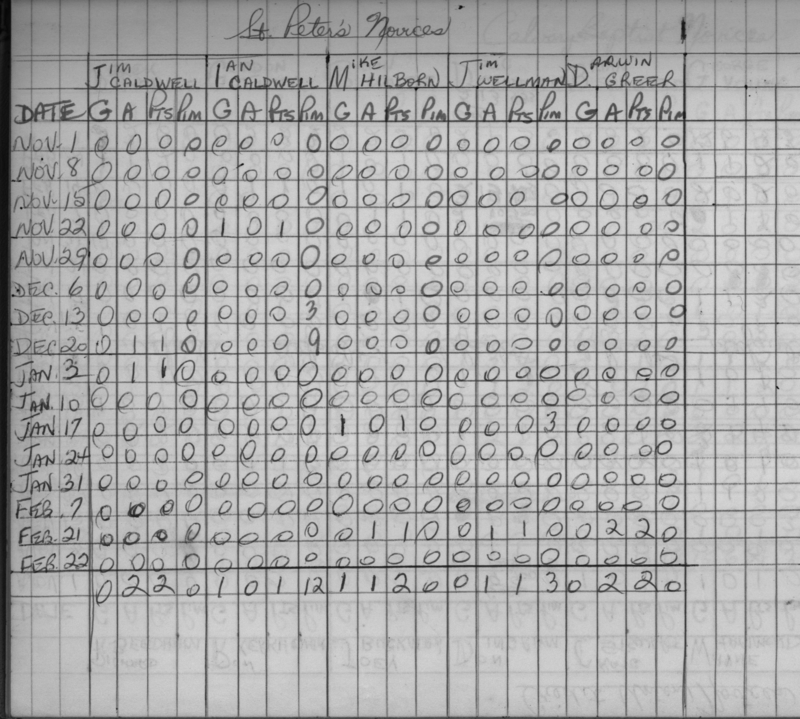 St. Peter's Novices
JIM CALDWELL IAN CALDWELL MIKE HILBORN JIM WELLMAN DARWIN GREER
DATE G A PTS PIM G A PTS PIM G A PTS PIM G A PTS PIM G A PTS PIM
NOV. 1 0 0 0 0 0 0 0 0 0 0 0 0 0 0 0 0 0 0 0 0
NOV. 8 0 0 0 0 0 0 0 0 0 0 0 0 0 0 0 0 0 0 0 0
NOV. 15 0 0 0 0 0 0 0 0 0 0 0 0 0 0 0 0 0 0 0 0
NOV. 22 0 0 0 0 1 0 1 0 0 0 0 0 0 0 0 0 0 0 0 0
NOV. 29 0 0 0 0 0 0 0 0 0 0 0 0 0 0 0 0 0 0 0 0
DEC. 6 0 0 0 0 0 0 0 0 0 0 0 0 0 0 0 0 0 0 0 0
DEC. 13 0 0 0 0 0 0 0 3 0 0 0 0 0 0 0 0 0 0 0 0
DEC. 20 0 1 1 0 0 0 0 9 0 0 0 0 0 0 0 0 0 0 0 0
JAN. 3 0 1 1 0 0 0 0 0 0 0 0 0 0 0 0 0 0 0 0 0
JAN. 10 0 0 0 0 0 0 0 0 0 0 0 0 0 0 0 0 0 0 0 0
JAN 17 0 0 0 0 0 0 0 0 1 0 1 0 0 0 0 3 0 0 0 0
JAN. 24 0 0 0 0 0 0 0 0 0 0 0 0 0 0 0 0 0 0 0 0
JAN. 31 0 0 0 0 0 0 0 0 0 0 0 0 0 0 0 0 0 0 0 0
FEB. 7 0 0 0 0 0 0 0 0 0 0 0 0 0 0 0 0 0 0 0 0
FEB. 21 0 0 0 0 0 0 0 0 0 1 1 0 0 1 1 0 0 2 2 0
FEB. 22 0 0 0 0 0 0 0 0 0 0 0 0 0 0 0 0 0 0 0 0
0 2 2 0 1 0 1 12 1 1 2 0 0 1 1 3 0 2 2 0